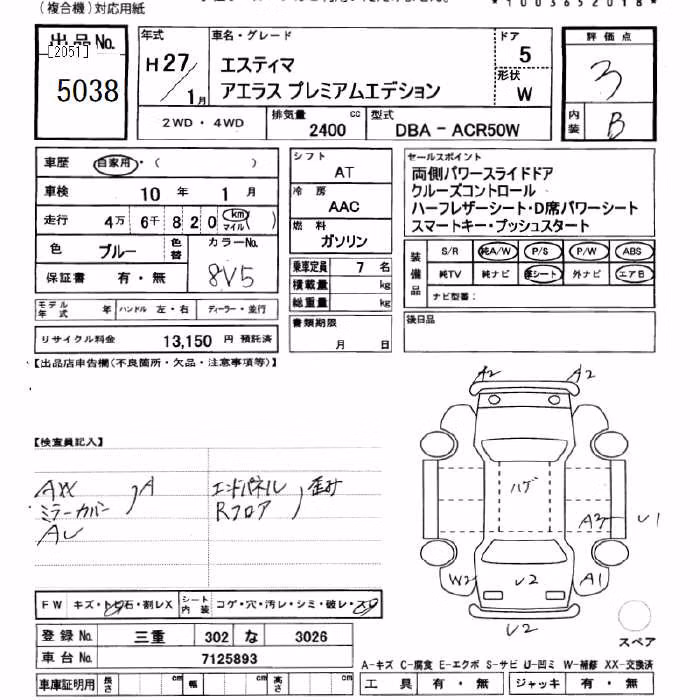 (複合機)対応用紙
*1003652018*
出品No.
[2051]
5038
年式
H27/1月
車名・グレード
エスティマ
アエラス プレミアムエデション
ドア
5
形状
W
評価点
3
内装
B
2WD・4WD
排気量
2400
cc
型式
DBA-ACR50W
車歴
自家用・( )
車検
10 年 1 月
走行
4万 6千 8 2 0 (km マイル)
色
ブルー
色替
カラーNo.
8V5
保証書
有・無
モデル年式
年
ハンドル
左・右
ディーラー・並行
リサイクル料金
13,150 円 預託済
シフト
AT
冷房
AAC
燃料
ガソリン
乗車定員
7 名
積載量
kg
総重量
kg
書類期限
月 日
セールスポイント
両側パワースライドドア
クルーズコントロール
ハーフレザーシート・D席パワーシート
スマートキー・プッシュスタート
装備品
S/R
純A/W
P/S
P/W
ABS
純TV
純ナビ
革シート
外ナビ
エアB
ナビ型番:
後日品
【出品店申告欄(不良箇所・欠品・注意事項等)】
【検査員記入】
AW
ミラーカバー
AU
)A
エンドパネル
Rフロア
)歪み
A2
A2
ハゲ
A2
U1
W2
U2
A1
U2
スペア
FW
キズ・トビ石・割レX
シート内装
コゲ・穴・汚レ・シミ・破レ・スレ
登録No.
三重
302
な
3026
車台No.
7125893
車庫証明用
長さ
cm
幅
cm
高さ
cm
A-キズ C-腐食 E-エクボ S-サビ U-凹ミ W-補修 XX-交換済
工具
有・無
ジャッキ
有・無